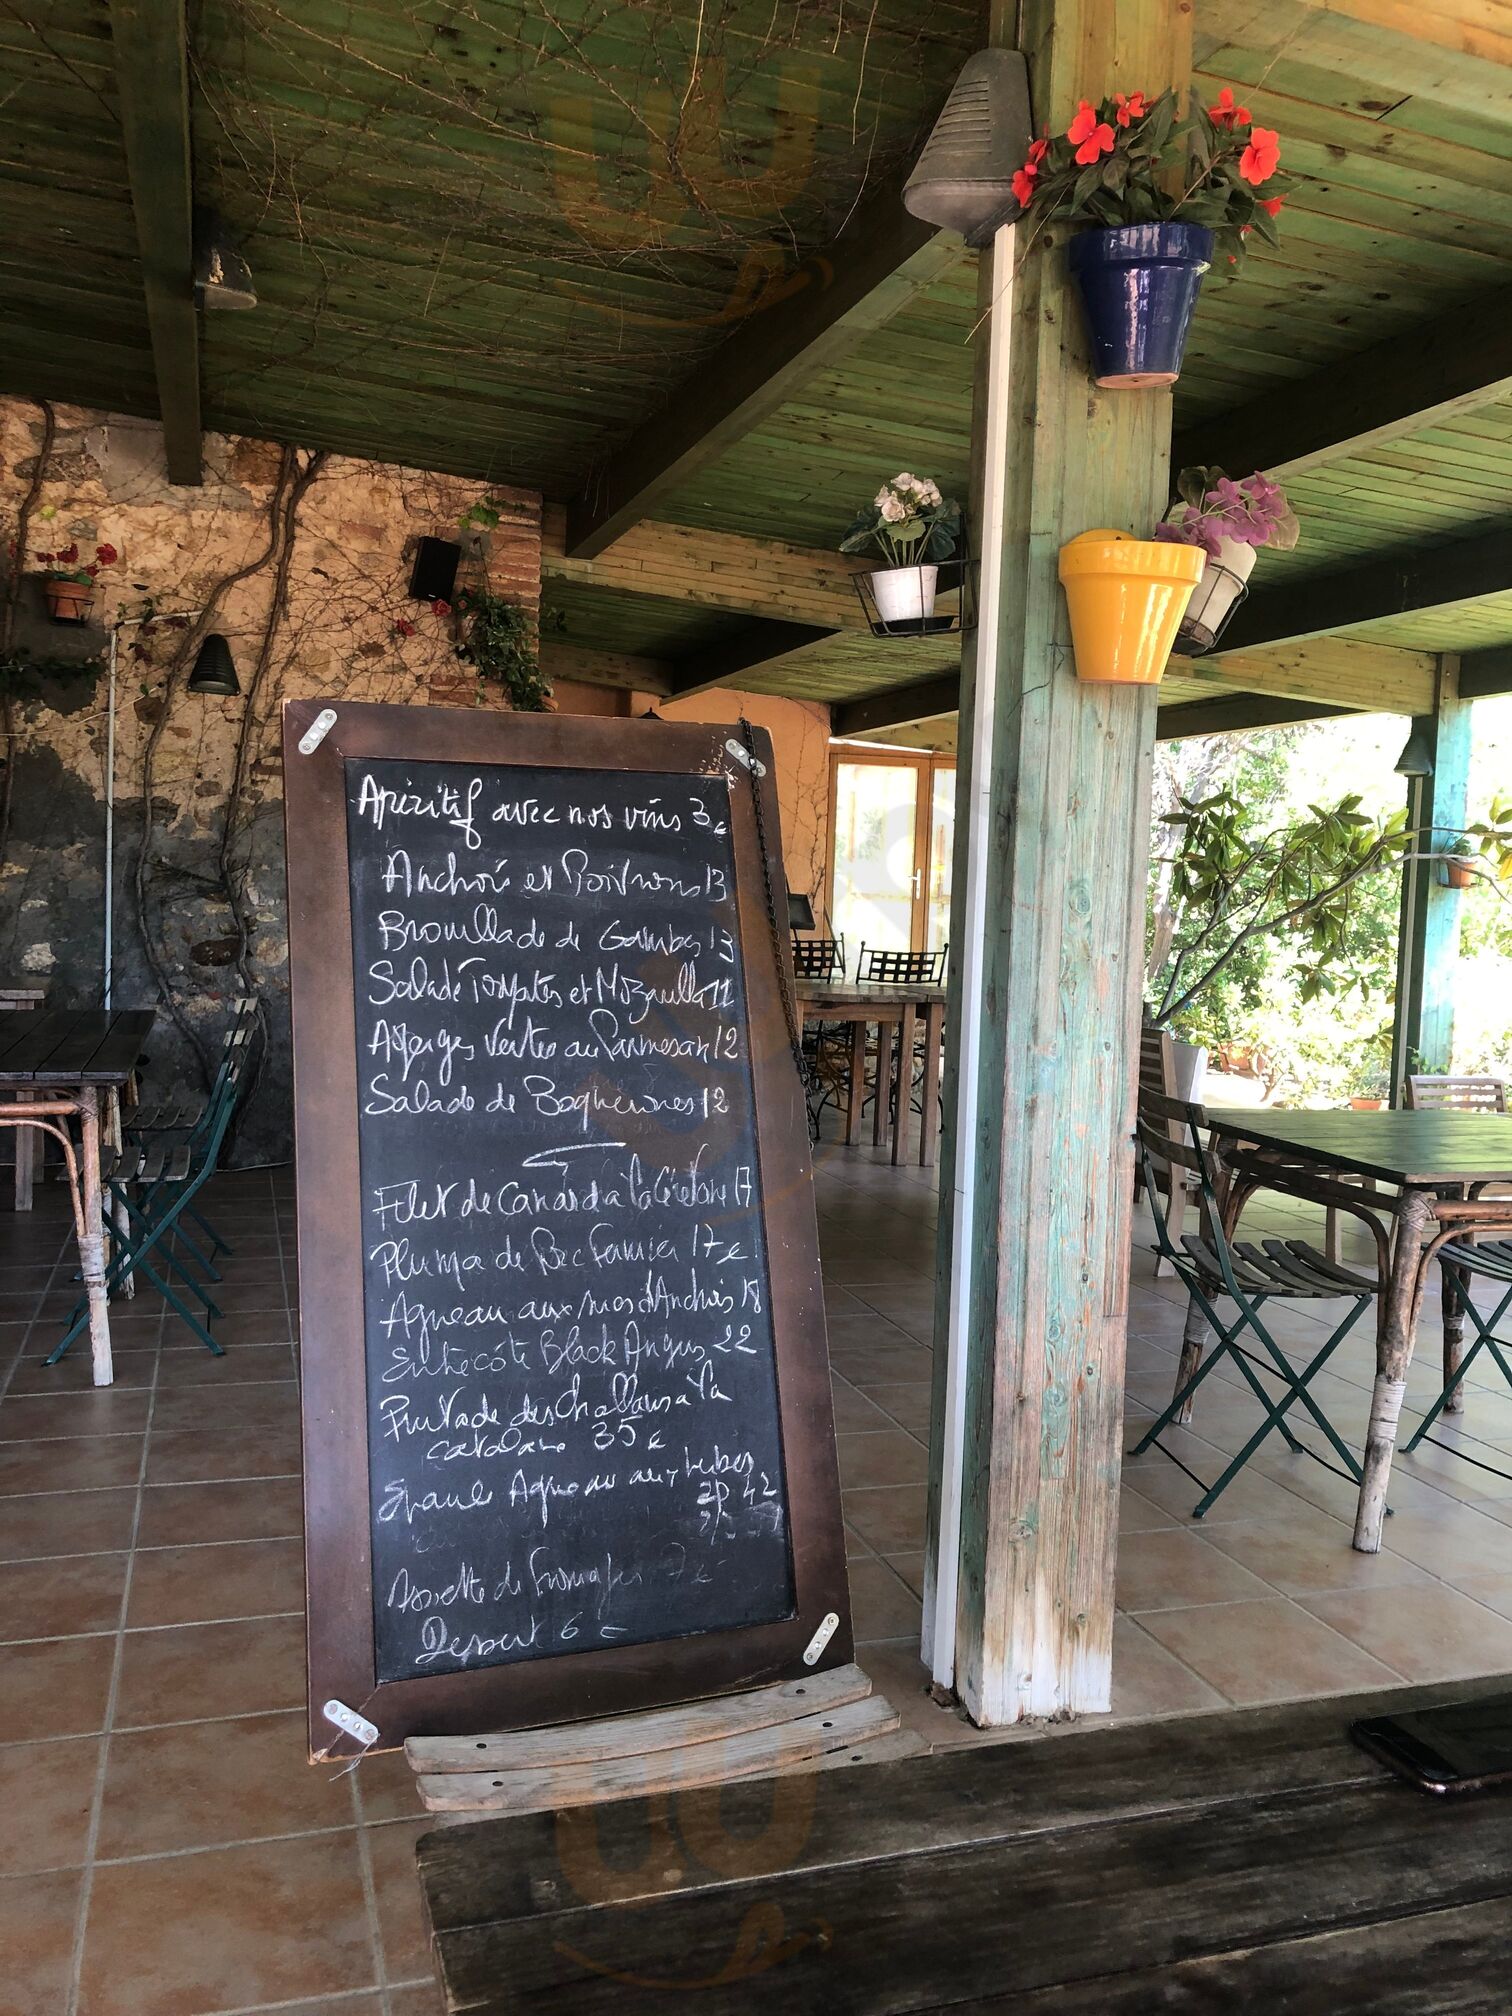 Apéritif avec nos vins 3€
Anchois et Poivrons 13
Brouillade de Gambas 13
Salade Tomates et Mozarella 11
Asperges Vertes au Parmesan 12
Salade de 12
Filet de Canard à la 17
Pluma de Bec 17€
Agneau aux d'Anchois 18
Entrecôte Black Angus 22
Pintade des Challans à la
catalane 35€
Epaule Agneau aux herbes
2P 42
Assiette de Fromages 7€
Dessert 6€